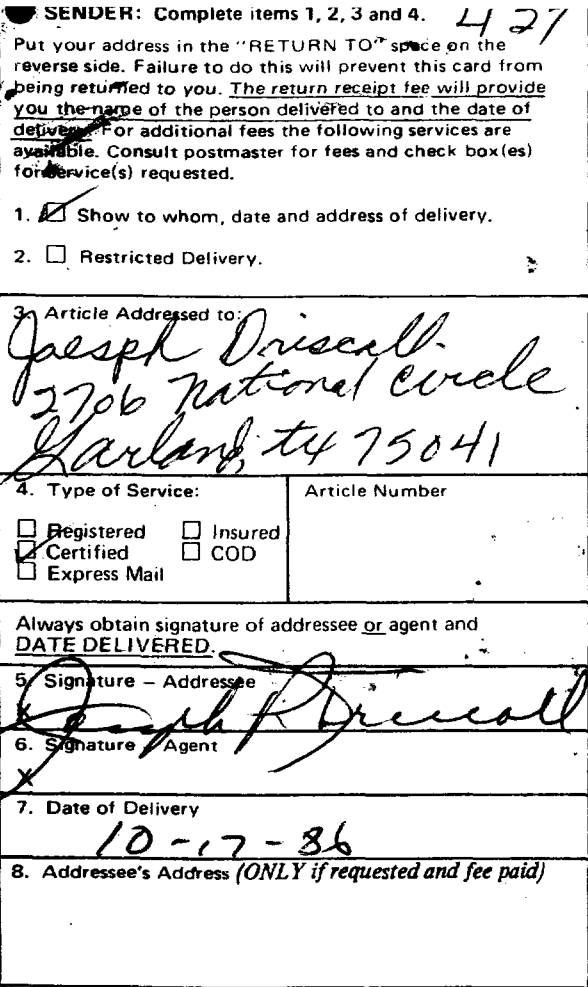 SENDER: Complete items 1, 2, 3 and 4. 427
Put your address in the "RETURN TO" space on the
reverse side. Failure to do this will prevent this card from
being returned to you. The return receipt fee will provide
you the name of the person delivered to and the date of
delivery. For additional fees the following services are
available. Consult postmaster for fees and check box(es)
for service(s) requested.
1. ☑ Show to whom, date and address of delivery.
2. ☐ Restricted Delivery.
3. Article Addressed to:
Joesph Driscall
2706 National Circle
Garland, TX 75041
4. Type of Service:
Article Number
☐ Registered ☐ Insured
☑ Certified ☐ COD
☐ Express Mail
Always obtain signature of addressee or agent and
DATE DELIVERED.
5. Signature – Addressee
X Joseph P Driscoll
6. Signature – Agent
X
7. Date of Delivery
10-17-86
8. Addressee's Address (ONLY if requested and fee paid)